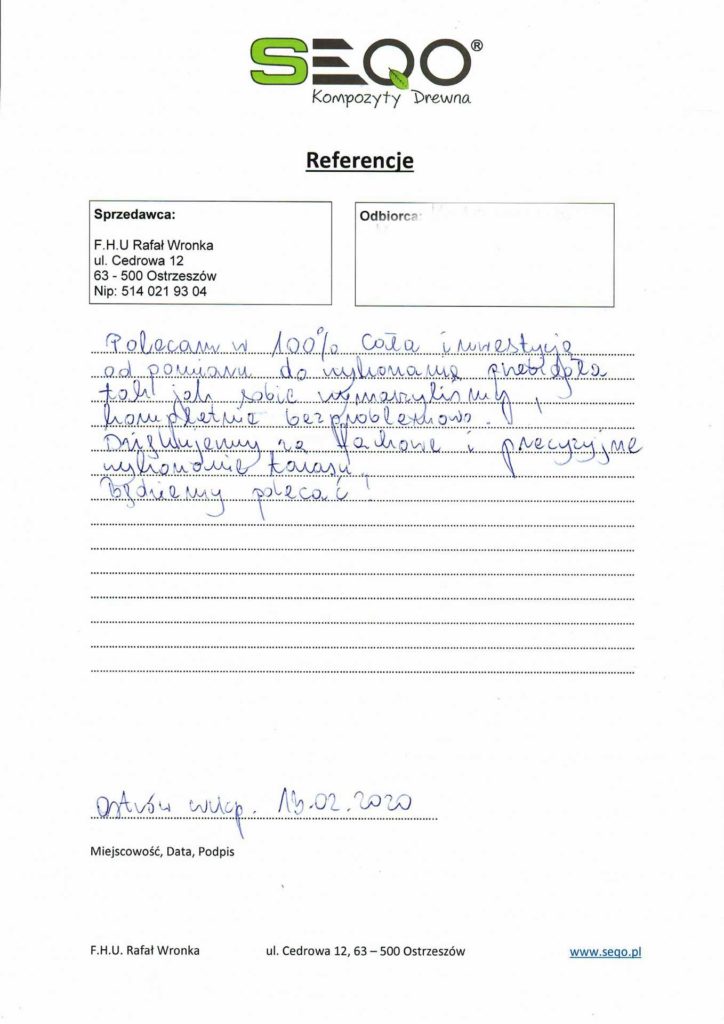 SEQO®
Kompozyty Drewna
Referencje
Sprzedawca:
F.H.U Rafał Wronka
ul. Cedrowa 12
63 - 500 Ostrzeszów
Nip: 514 021 93 04
Odbiorca:
Polecam w 100% cała inwestycja
od pomiaru do wykonania przebiegła
tak jak sobie wymarzyliśmy,
kompletnie bezproblemowo.
Dziękujemy za fachowe i precyzyjne
wykonanie tarasu.
Będziemy polecać!
Ostrów wlkp. 13.02.2020
Miejscowość, Data, Podpis
F.H.U. Rafał Wronka ul. Cedrowa 12, 63 – 500 Ostrzeszów www.seqo.pl